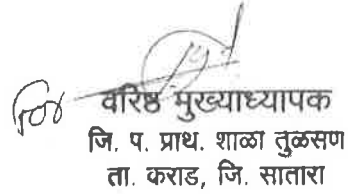 वरिष्ठ मुख्याध्यापक
जि. प. प्राथ. शाळा तुळसण
ता. कराड, जि. सातारा